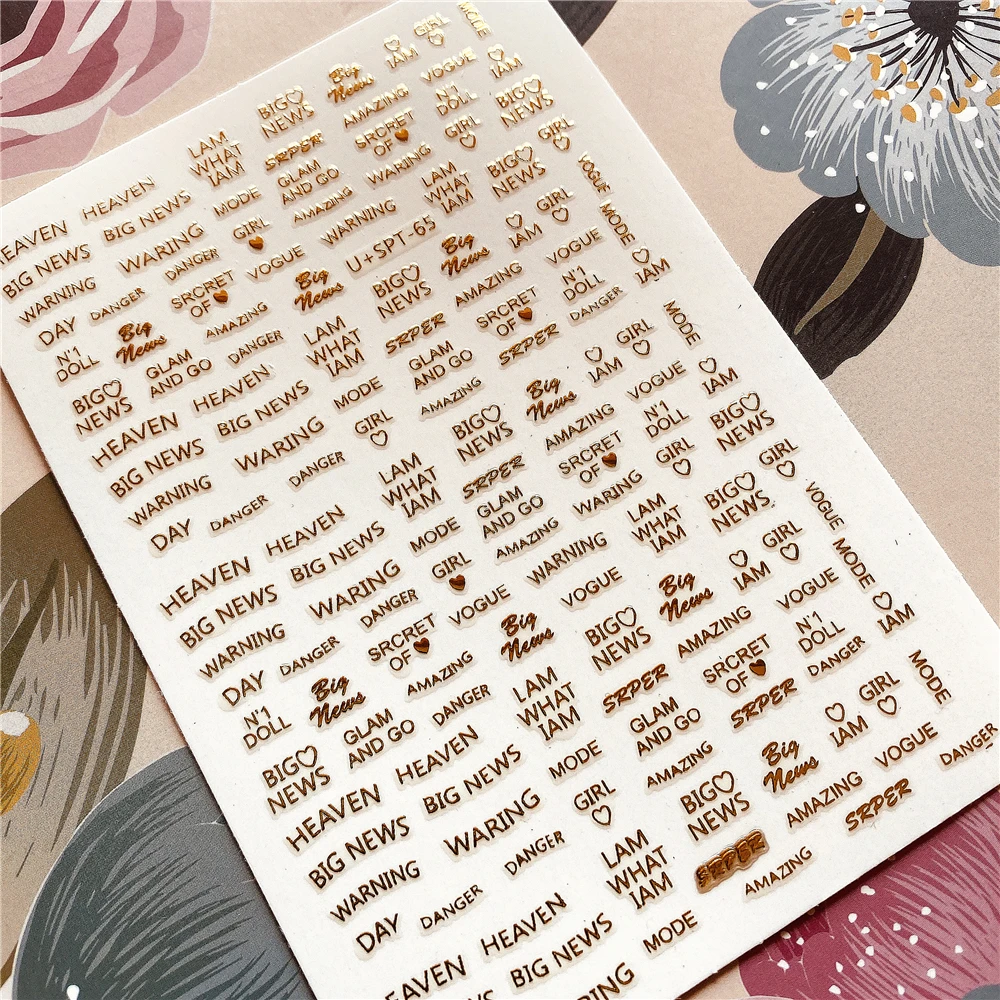 VOGUE
GIRL
IAM
Big
News
VOGUE
IAM
BIG
NEWS
AMAZING
N'1
DOLL
BIG
NEWS
LAM
WHAT
IAM
SRPER
SRCRET
OF
GIRL
GIRL
HEAVEN
HEAVEN
MODE
GLAM
AND GO
WARNING
LAM
WHAT
IAM
BIG
NEWS
VOGUE
BIG NEWS
BIG NEWS
GIRL
AMAZING
WARNING
GIRL
MODE
WARNING
WARING
VOGUE
U+SPT-65
Big
News
IAM
DAY
DANGER
DANGER
SRCRET
OF
Big
News
BIG
NEWS
AMAZING
VOGUE
IAM
N'1
DOLL
Big
News
AMAZING
LAM
WHAT
IAM
SRPER
SRCRET
OF
N'1
DOLL
DANGER
MODE
BIG
NEWS
GLAM
AND GO
DANGER
GLAM
AND GO
SRPER
GIRL
HEAVEN
HEAVEN
MODE
AMAZING
Big
News
IAM
VOGUE
IAM
BIG NEWS
BIG NEWS
GIRL
BIG
NEWS
AMAZING
N'1
DOLL
BIG
NEWS
WARNING
WARING
LAM
WHAT
IAM
SRPER
SRCRET
OF
GIRL
GIRL
DAY
DANGER
DANGER
GLAM
AND GO
WARING
BIG
NEWS
VOGUE
HEAVEN
HEAVEN
MODE
AMAZING
LAM
WHAT
IAM
GIRL
MODE
BIG NEWS
BIG NEWS
GIRL
WARNING
IAM
WARNING
WARING
VOGUE
VOGUE
Big
News
VOGUE
IAM
DAY
DANGER
DANGER
SRCRET
OF
Big
News
BIG
NEWS
AMAZING
N'1
DOLL
MODE
N'1
DOLL
Big
News
AMAZING
LAM
WHAT
IAM
SRPER
SRCRET
OF
DANGER
BIG
NEWS
GLAM
AND GO
DANGER
GLAM
AND GO
SRPER
GIRL
HEAVEN
HEAVEN
MODE
AMAZING
Big
News
IAM
VOGUE
DANGER
BIG NEWS
BIG NEWS
GIRL
BIG
NEWS
AMAZING
SRPER
WARNING
WARING
LAM
WHAT
IAM
SRPER
AMAZING
DAY
DANGER
DANGER
HEAVEN
HEAVEN
MODE
BIG NEWS
WARING